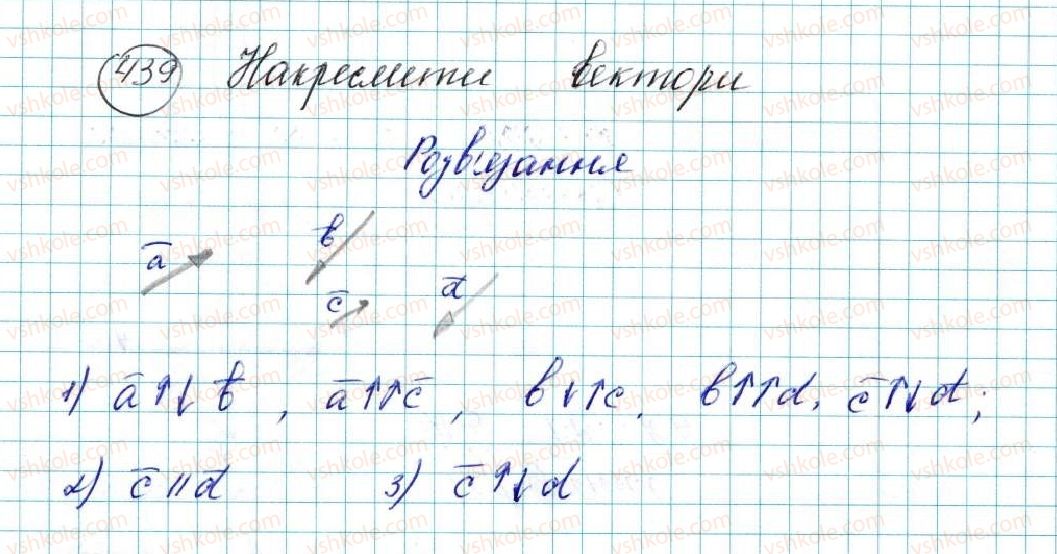 439 Накреслити вектори
Розв'язання
a̅ b̅
c̅ d̅
1) a̅↑↓b̅, a̅↑↑c̅, b↓↑c, b↑↑d, c̅↑↓d̅;
2) c̅ ∥ d̅ 3) c̅↑↓d